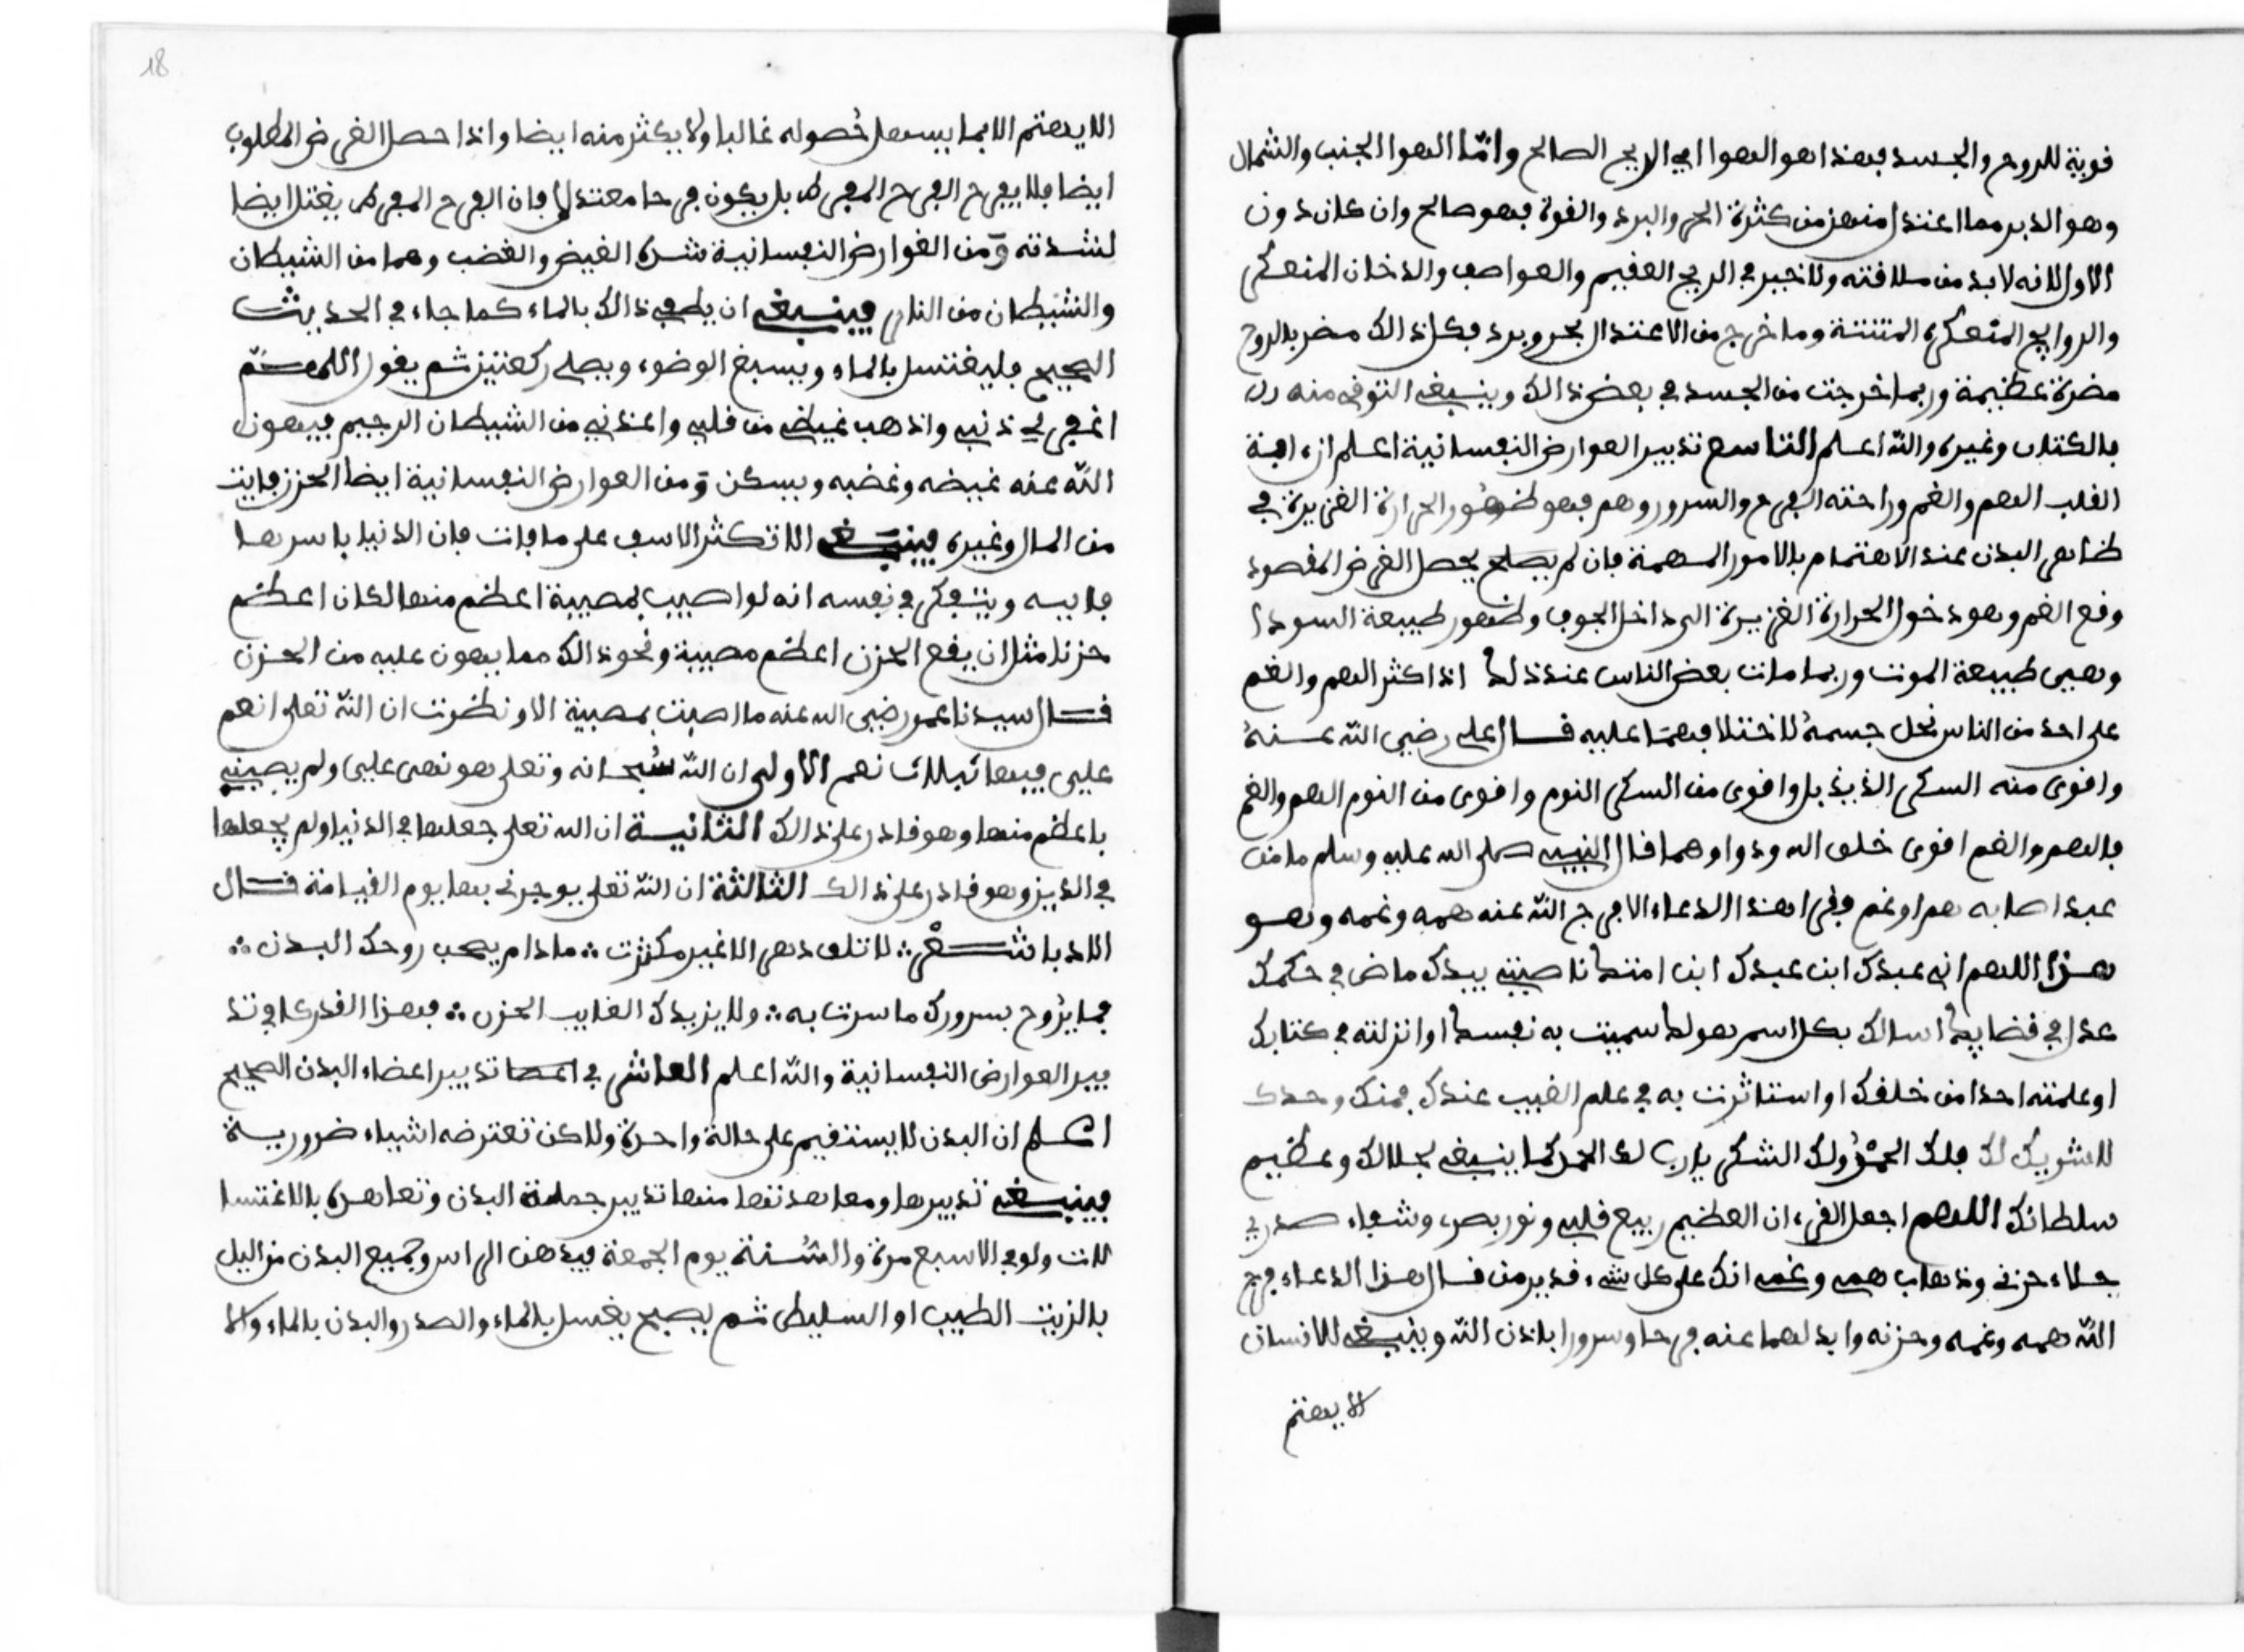 قوية للروح والجسد فهذا هو الهوا اي الريح الصالح وامّا الهوا الجنب والشمال
وهو الدبر مما اعتدل منهن من كثرة الحر والبرد والقوة فهو صالح وان كان دون
الاول لانه لا بد من ملاقته ولا خير في الريح العقيم والعواصف والدخان المتعكر
والروايح المتعكرة المنتنة وما خرج من الاعتدال بحر وبرد فكل ذالك مضر بالروح
مضرة عظيمة وربما خرجت من الجسد في بعض ذالك وينبغي التوقي منه
بالكتاب وغيره والله اعلم التاسع تدبير العوارض النفسانية اعلم ان ءافة
القلب الهم والغم وراحته الفرح والسرور وهم فهو ظهور الحرارة الغريزة في
ظاهر البدن عند الاهتمام بالامور المهمة فان لم يصلح يحصل الغرض المقصود
وقع الغم وهو دخول الحرارة الغريزة الى داخل الجوف وظهور طبيعة السودا
وهيى طبيعة الموت وربما مات بعض الناس عند ذلك اذا كثر الهم والغم
على احد من الناس نحل جسمه لاختلافهما عليه قال علي رضي الله عنه
واقوى منه السكر الذيذبل واقوى من السكر النوم واقوى من النوم الهم والغم
فالهم والغم اقوى خلق الله ودواوهما قال النبيي صلى الله عليه وسلم ما من
عبد اصابه هم او غم وقرا هذا الدعاء الا فرج الله عنه همه وغمه وهو
هذا اللهم اني عبدك ابن عبدك ابن امتك ناصيتي بيدك ماض في حكمك
عدل في قضايك اسالك بكل اسم هو لك سميت به نفسك او انزلته في كتابك
او علمته احدا من خلقك او استاثرت به في علم الغيب عندك بمنك وحدك
لا شريك لك فلك الحمد ولك الشكر يا رب لك الحمد كما ينبغي لجلالك وعظيم
سلطانك اللهم اجعل القرءان العظيم ربيع قلبي ونور بصري وشفاء صدري
جلاء حزني وذهاب همي وغمي انك على كل شيء قدير من قال هذا الدعاء فرج
الله همه وغمه وحزنه وابدلهما عنه فرحا وسرورا باذن الله وينبغي للانسان
الا يهتم
18
الا يهتم الا بما يسهل حُصوله غالبا ولا يكثر منه ايضا واذا حصل الغرض المطلوب
ايضا فلا يفرح الفرح المفرط بل يكون فرحا معتدلا فان الفرح المفرط يقتل ايضا
لشدته وَمن العوارض النفسانية شدة الغيض والغضب وهما من الشيطان
والشيطان من النار فينبغي ان يطفي ذالك بالماء كما جاء في الحديث
الصحيح فليغتسل بالماء ويسبغ الوضوء ويصلي ركعتين ثم يقول اللهم
اغفر لي ذنبي واذهب غيظي من قلبي واعذني من الشيطان الرجيم فيهون
الله عنه غيضه وغضبه ويسكن وَمن العوارض النفسانية ايضا الحزن فايت
من المال وغيره فينبغي الا تكثر الاسف على ما فات فان الدنيا باسرها
فانيه ويتفكر في نفسه انه لو اصيب بمصيبة اعظم منها لكان اعظم
حزنا مثل ان يقع الحزن اعظم مصيبة ونحو ذالك مما يهون عليه من الحزن
قال سيدنا عمر رضي الله عنه ما اصبت بمصيبة الا ونظرت ان الله تعلى انعم
عليى فيها ثلاث نعم الاولى ان الله سُبحانه وتعلى هونها عليى ولم يصيبني
باعظم منها وهو قادر على ذالك الثانية ان الله تعلى جعلها في الدنيا ولم يجعلها
في الدين وهو قادر على ذالك الثالثة ان الله تعلى يوجرني بها يوم القيامة قال
الاديا شعر ؞ لا تلق دهرك الا غير مكترث ؞ ما دام يصحب روحك البدن ؞
فما يدوم سرورك ما سرت به ؞ ولا يزيدك الغايب الحزن ؞ فهذا القدر كاف تد
بير العوارض النفسانية والله اعلم العاشر في تدبير اعضاء البدن الصحيح
اعلم ان البدن لا يستقيم على حالة واحدة ولاكن تعترضه اشياء ضرورية
فينبغي تدبيرها ومعاهدتها منها تدبير جملة البدن وتعاهده بالاغتسا
لات ولو في الاسبع مرة والسُنة يوم الجمعة فيدهن الراس وجميع البدن من اليل
بالزيت الطيب او السليط ثم يصبح يغسل بالماء والصدر والبدن بالماء والا